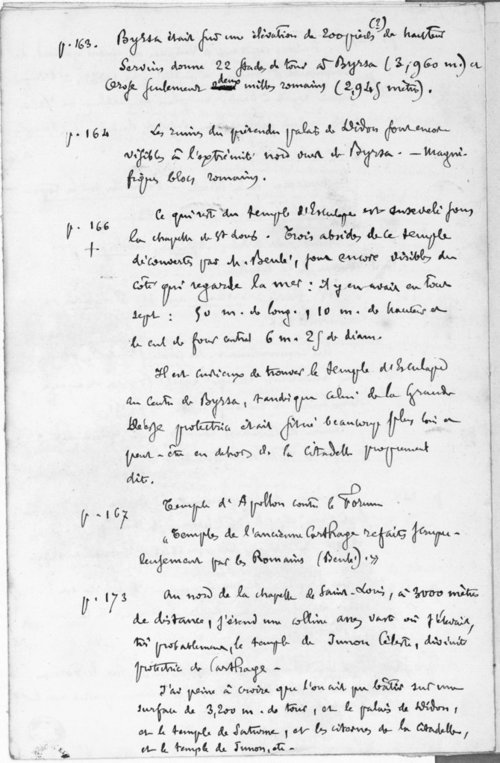 (?)
p. 163. Byrsa était sur une élévation de 200 pieds de hauteur
Servius donne 22 stades de tour à Byrsa (3,960 m.) et
Orose seulement deux milles romains (2,945 mètres).
p. 164 Les ruines du prétendu palais de Didon sont encore
visibles à l'extrémité nord ouest de Byrsa. — Magni-
fiques blocs romains.
p. 166 Ce qui reste du temple d'Esculape est enseveli sous
+ la chapelle de St Louis. Trois absides de ce temple
découvertes par M. Beulé, sont encore visibles du
côté qui regarde la mer : il y en avait en tout
sept : 50 m. de long., 10 m. de hauteur et
le cul de four central 6 m. 25 de diam.
Il est curieux de trouver le temple d'Esculape
au centre de Byrsa, tandis que celui de la Grande
Déesse protectrice était situé beaucoup plus loin et
peut-être en dehors de la citadelle proprement
dit.
p. 167 Temple d'Apollon contre le Forum
"Temples de l'ancienne Carthage refaits scrupu-
leusement par les Romains (Beulé)."
p. 173 Au nord de la chapelle de Saint-Louis, à 3000 mètres
de distance, s'étend une colline assez vaste où s'élevait,
très probablement, le temple de Junon Céleste, divinité
protectrice de Carthage —
J'ai peine à croire que l'on ait pu bâtir sur une
surface de 3,200 m. de tour, et le palais de Didon,
et le temple de Saturne, et les citernes de la citadelle,
et le temple de Junon, etc —